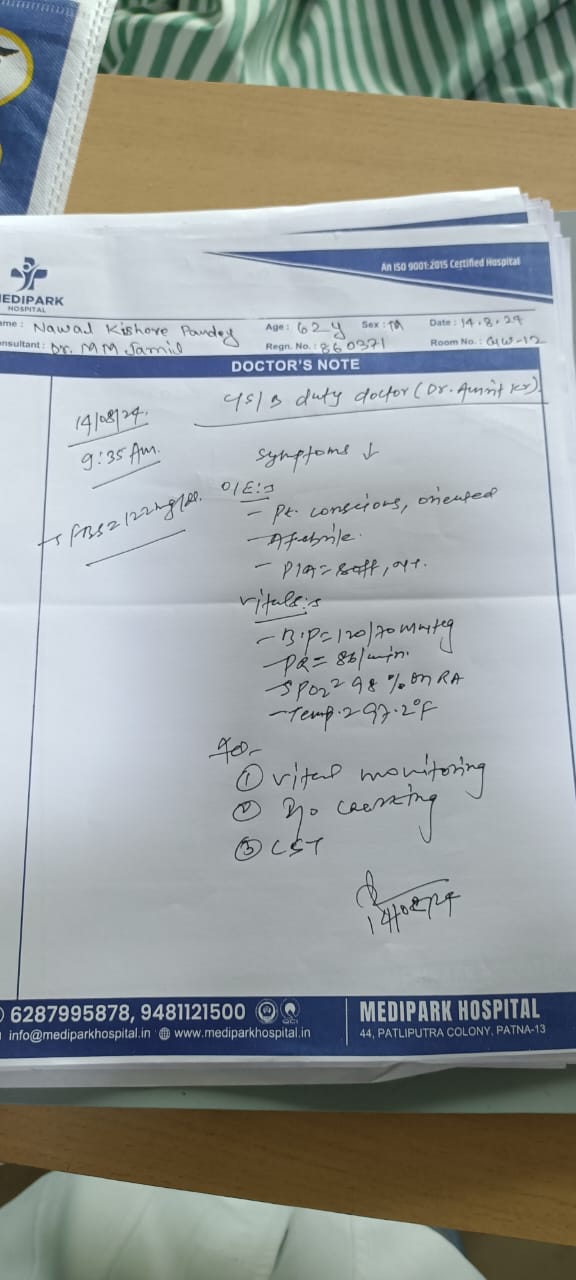 An ISO 9001:2015 Certified Hospital
MEDIPARK
HOSPITAL
ame : Nawal Kishore Pandey Age : 62 y Sex : M Date : 14.8.24
nsultant : Dr. MM Jamil Regn. No. : 860371 Room No. : GW-12
DOCTOR'S NOTE
14/08/24. c/s/b duty doctor (Dr. Amrit Kr).
9:35 Am.
Symptoms ↓
O/E:-
FBS = 122 mg/
- Pt. conscious, oriented
- Afebrile.
- P/A = Soft,
Vitals:-
- B.P = 120/70 mmHg
- PR = /min.
- SPO2 = 98 % on RA
- Temp. = 97.2°F
① vital monitoring
② I/O
③ CST
14/08/24
6287995878, 9481121500
QCI
info@mediparkhospital.in www.mediparkhospital.in
MEDIPARK HOSPITAL
44, PATLIPUTRA COLONY, PATNA-13